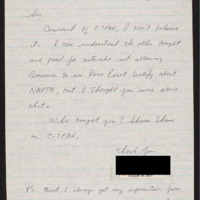 Sir,
Censored by C-SPAN, I can't believe
it. I can understand the other bought
and paid for networks not allowing
Americans to see Ross Perot testify about
NAFTA, but I thought you were above
that.
Who bought you? Shame Shame
on C-SPAN.
Thank You
PS. Think I always get my information from